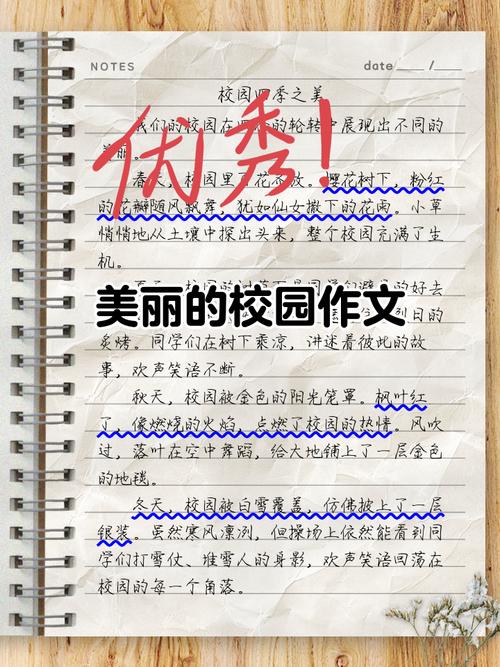 NOTES
date ____ / ____
校园四季之美
优秀!
我们的校园在四季的轮转中展现出不同的
美丽。
春天,校园里百花齐放。樱花树下,粉红
的花瓣随风飘舞,犹如仙女撒下的花雨。小草
悄悄地从土壤中探出头来,整个校园充满了生
机。
美丽的校园作文
夏天,校园的
是同学们避暑的好去
烈日的
炙烤。同学们在树下乘凉,讲述着彼此的故
事,欢声笑语不断。
秋天,校园被金色的阳光笼罩。枫叶红
了,像燃烧的火焰,点燃了校园的热情。风吹
过,落叶在空中舞蹈,给大地铺上了一层金色
的地毯。
冬天,校园被白雪覆盖,仿佛披上了一层
银装。虽然寒风凛冽,但操场上依然能看到同
学们打雪仗、堆雪人的身影,欢声笑语回荡在
校园的每一个角落。